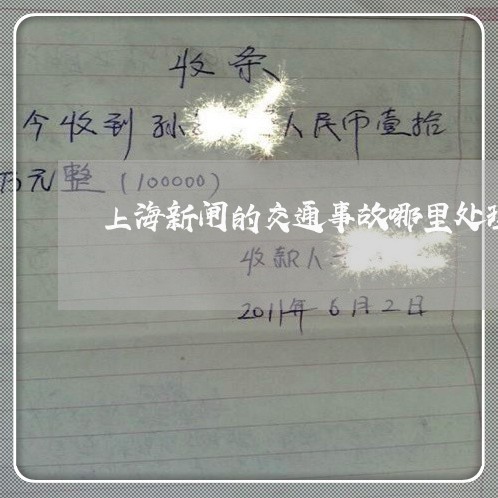 收条
今收到孙 人民币壹拾
万元整(100000)
上海新闸的交通事故哪里处理
收款人
2011年6月2日